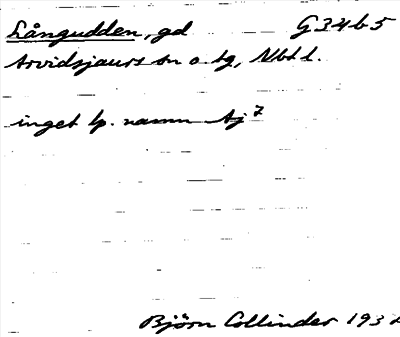 Långudden, gd G34b5
Arvidsjaurs sn o. tg, Nbt l.
inget lp. namn Aj 7
Björn Collinder 193